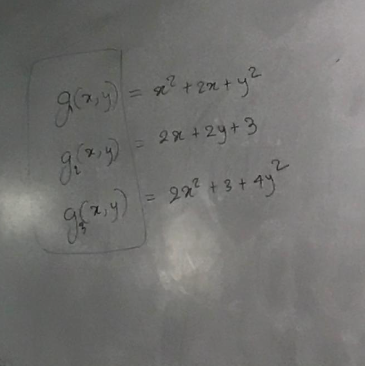 g₁(x,y) = x² + 2x + y²
g₂(x,y) = 2x + 2y + 3
g₃(x,y) = 2x² + 3 + 4y²